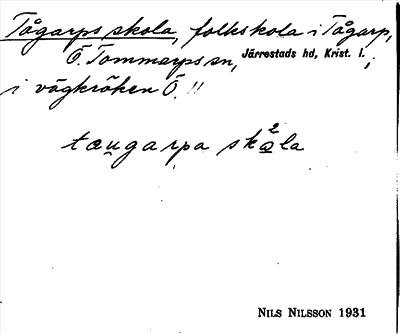 Tågarps skola, folkskola i Tågarp,
Ö. Tommarps sn, Järrestads hd, Krist. l.,
i vägkröken Ö. !!
tæu̯garpa sk²o̲la
NILS NILSSON 1931